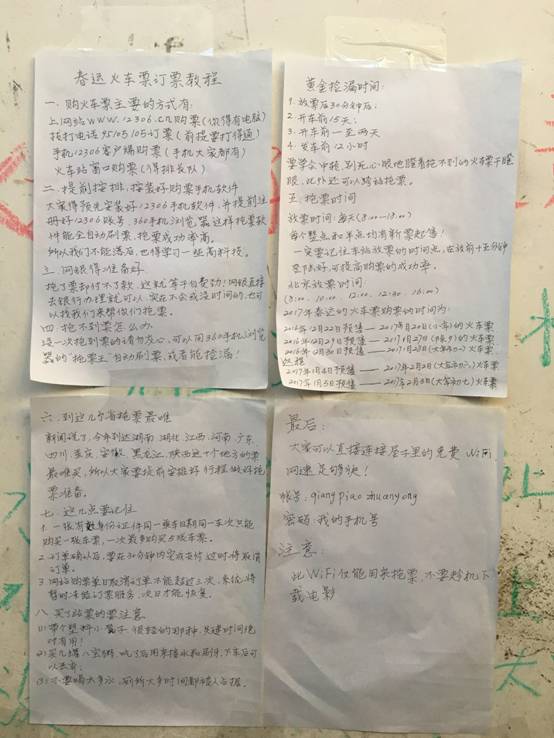 春运火车票订票教程
一. 购火车票主要的方式有:
上网站www.12306.cn购票(你得有电脑)
拔打电话95105105订票(前提票打得通)
手机12306客户端购票(手机大家都有)
火车站窗口购票(得排长队)
二. 提前安排, 安装好购票手机软件
大家得预先安装好12306手机软件, 并提前注
册好12306账号, 360手机浏览器这样抢票软
件能全自动刷票, 抢票成功率高.
所以我们不能落后, 也得学习一些高科技.
三. 网银得准备好
抢了票却付不了款, 这就等于白费劲! 网银直接
去银行办理就可以, 实在不会或没时间的, 也可
以找我们来帮你们抢票.
四. 抢不到票怎么办
没一次抢到票的请勿灰心, 可以用360手机浏览
器的"抢票王"自动刷票, 或者能捡漏!
黄金捡漏时间:
1. 放票后30分钟后;
2. 开车前15天;
3. 开车前一至两天
4. 发车前12小时
要学会中转, 别死心眼地盯着抢不到的火车票干瞪
眼, 此外还可以跨站抢票.
五. 抢票时间
放票时间: 每天(8:00-18:00)
每个整点和半点均有新票起售!
一定要记住车站放票的时间点, 在放前十五分钟
登陆好, 可提高购票的成功率.
北京放票时间
(8:00. 10:00. 12:00. 12:30. 16:00)
2017年春运的火车票购票的时间为:
2016年12月22日预售——2017年1月20日(小年)的火车票
2016年12月29日预售——2017年1月27日(除夕)的火车票
2016年12月30日预售——2017年1月28日(大年初一)火车票
返程
2017年1月4日预售——2017年2月2日(大年初六)火车票
2017年1月5日预售——2017年2月3日(大年初七)火车票
六. 到这几个省抢票最难
新闻说了, 今年到达湖南 湖北 江西. 河南. 广东.
四川. 重庆 安徽 黑龙江. 陕西这十个地方的票
最难买, 所以大家要提前安排好行程做好抢
票准备.
七. 这几点要记住
1. 一张有效身份证件同一乘车日期同一车次只能
购买一张车票, 一次最多购买5张车票.
2. 订单确认后, 要在30分钟内完成支付 过时, 得取消
订单.
3. 网站购票单日取消订单不能超过三次, 否则, 将
暂时冻结订票服务, 次日才能恢复.
八. 买了站票的要注意
(1) 带个塑料小凳子 很轻的那种, 关键时刻绝
对有用!
(2) 买几罐八宝粥, 吃了后用来接水和 下车后可
以丢弃;
(3) 不要喝太多水, 厕所大多时间都被人占据.
最后:
大家可以直接连接屋子里的免费 WiFi,
网速足够快!
帐号: qiang piao zhuanyong
密码: 我的手机号
注意:
此WiFi仅能用来抢票, 不要趁机下
载电影